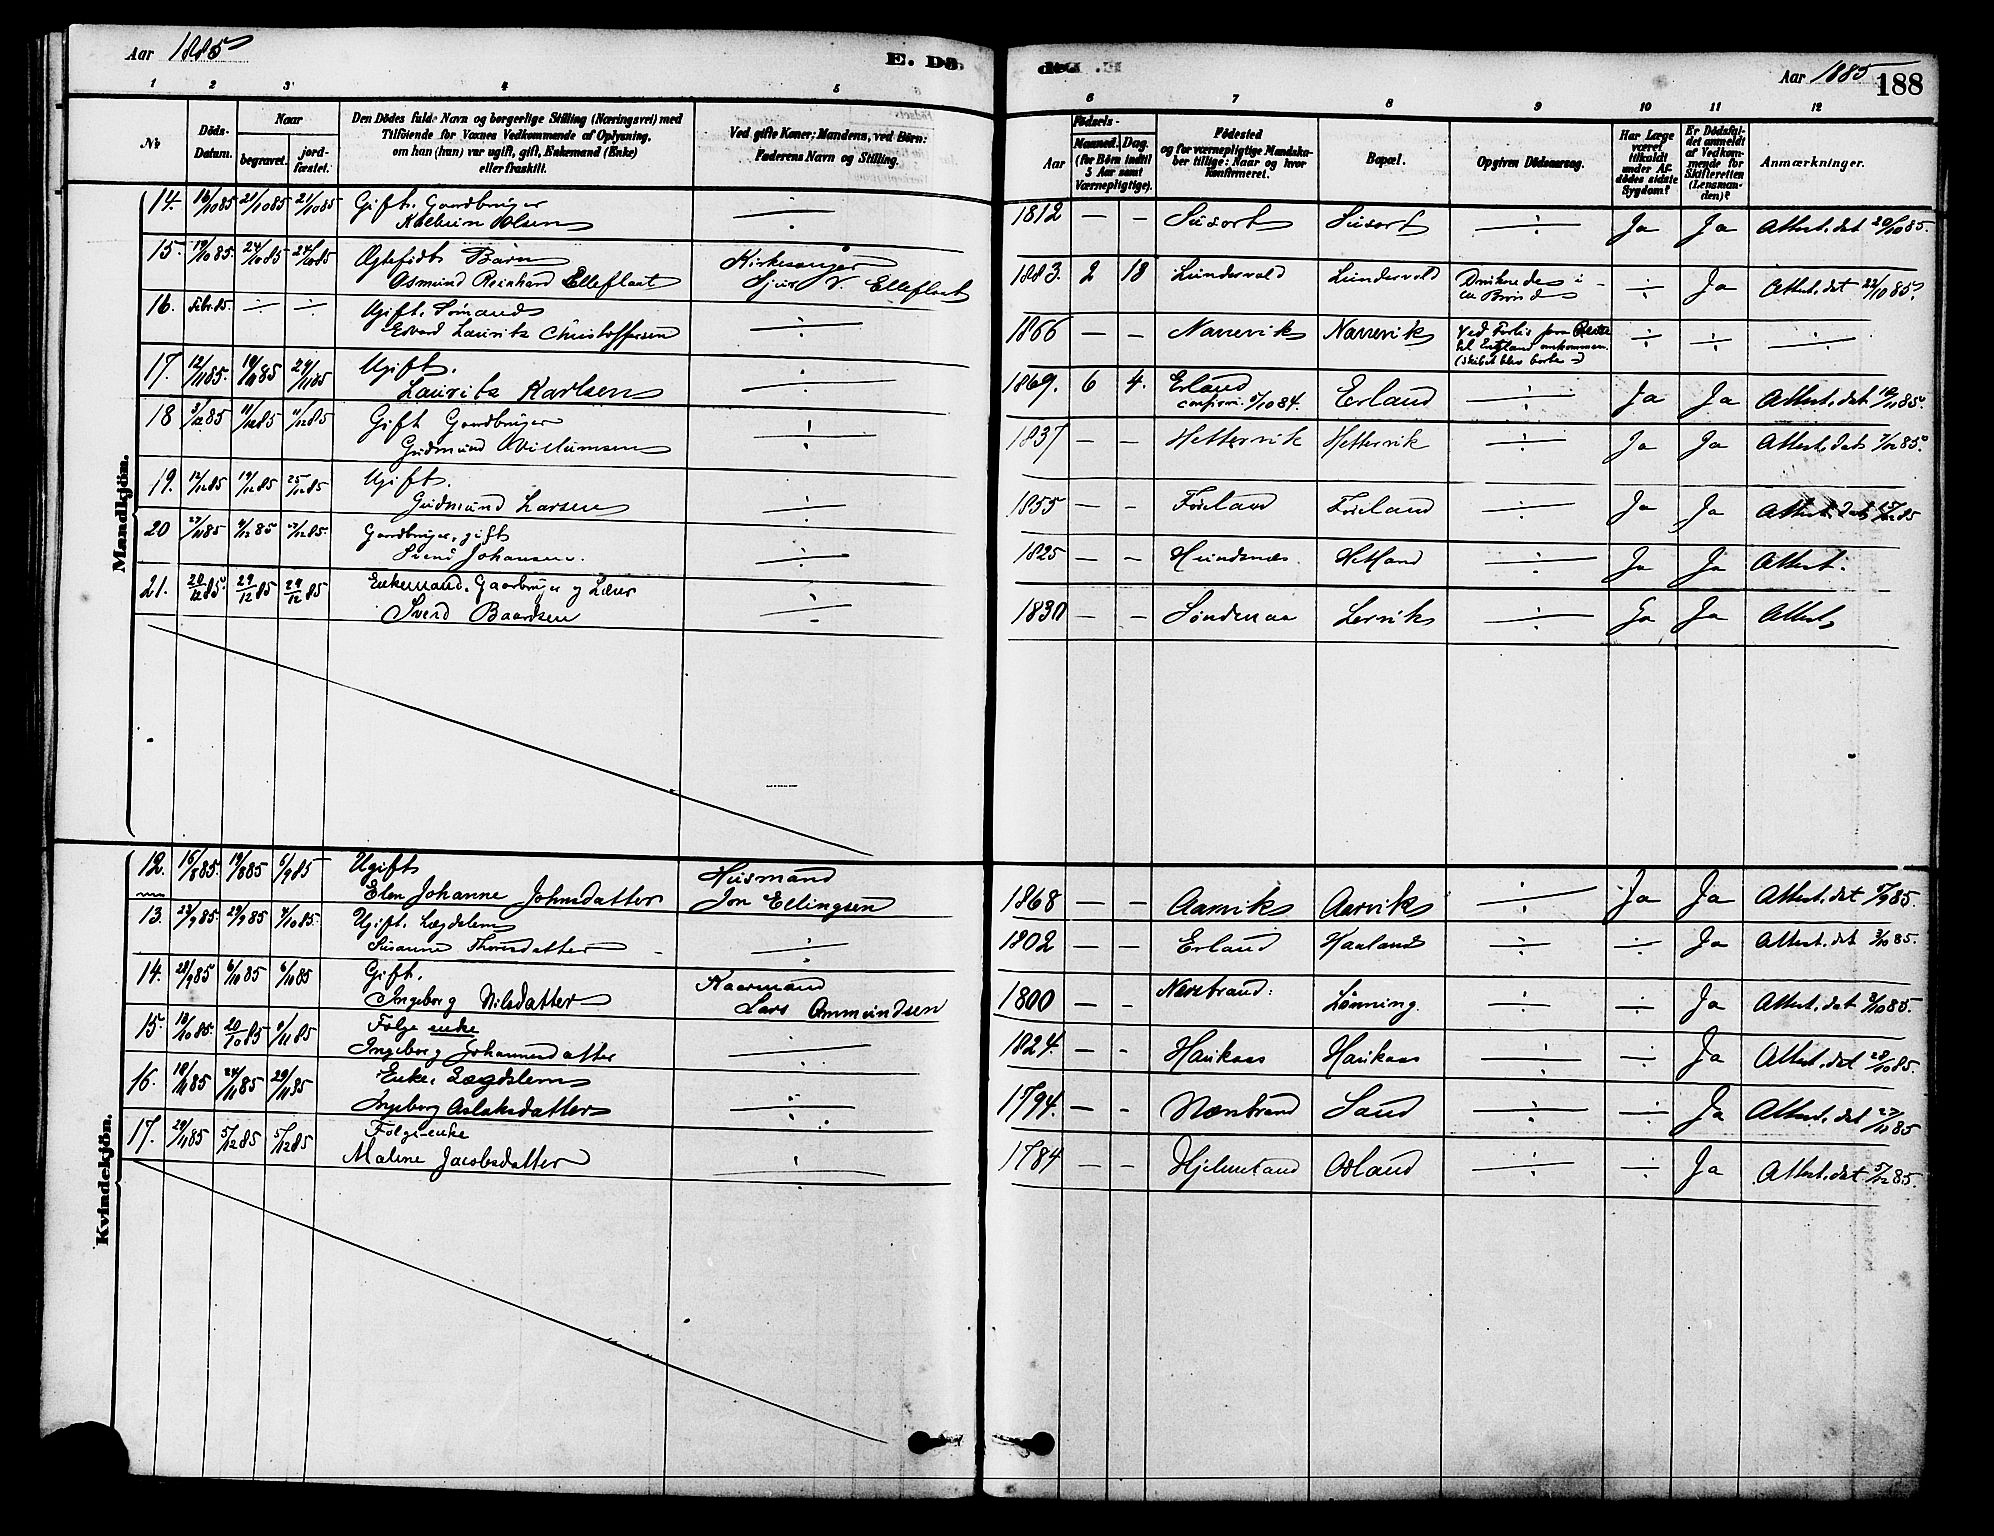 Aar 1885
E. Dö
de.
Aar 1885
188
1 2 3 4 5
6 7 8 9 10 11 12
No
Döds-
Datum.
Naar
begravet.
jord-
fæstet.
Den Dödes fulde Navn og borgerlige Stilling (Næringsvei) med
Tilföiende for Voxnes Vedkommende af Oplysning,
om han (hun) var ugift, gift, Enkemand (Enke)
eller fraskilt.
Ved gifte Koner: Mandens, ved Börn:
Faderens Navn og Stilling.
Födsels-
Aar
Maaned. Dag.
(for Börn indtil
5 Aar samt
Værnepligtige).
Födested
og for værnepligtige Mandska-
ber tillige: Naar og hvor
Konfirmeret.
Bopæl.
Opgiven Dödsaarsag.
Har Læge
været
tilkaldt
under Af-
dödes sidste
Sygdom?
Er Dödsfal-
det anmeldt
af Vedkom-
mende for
Skifteretten
(Lensman-
den)?
Anmærkninger.
Mandkjön.
14. 16/10 85 21/10 85 21/10 85 Gift. Gaardbruger
Olsen ÷ 1812 — — Susort Susort ÷ Ja Ja Attest. dat 20/10 85.
15. 19/10 85. 24/10 85 24/10 85 Ægtefødt Barn
Osmund Reinhard Elleflaat
Kirkesanger
Sjur N. Elleflaat 1883. 2 18 Lundervold Lundervold Druknede i
en Brønd ÷ Ja Attest. dat 22/10 85.
16. Febr. 85. ÷ ÷ Ugift. Sømand
Edvard Laurits Christoffersen ÷ 1866 — — Narrevik Narrevik Ved Forlis fra
til England omkommen.
(skibet blev borte) ÷ ÷ ÷
17. 12/11 85. 19/11 85 29/11 85 Ugift.
Laurits Karlsen ÷ 1869. 6 4. Erland
confirm. 5/10 84. Erland ÷ Ja Ja Attest. dat 18/11 85.
18 3/12 85 11/12 85 11/12 85 Gift Gaardbruger
Gudmund Villumsen ÷ 1837 — — Hettervik Hettervik ÷ Ja Ja Attest. dat 7/12 85.
19. 12/12 85 19/12 85 25/12 85 Ugift.
Gudmund Larsen ÷ 1855 — — Føreland Føreland ÷ Ja Ja Attest. dat 15/12 85
20 27/11 85 4/12 85 4/12 85. Gaardbruger, gift
Johansen. ÷ 1825 — — Hundsnæs. Hetland ÷ Ja Ja Attest.
21. 20/12 85. 29/12 85 29/12 85 Enkemand. Gaarbruger og Lærer
Svend Baardsen ÷ 1830 — — Søndenaa Lervik ÷ Ja Ja Attest.
Kvindekjön.
12. 16/8 85. 19/8 85 6/9 85 Ugift
Elen Johanne Johnsdatter
Husmand
Jon Ellingsen 1868 — — Aarvik Aarvik ÷ Ja Ja Attest. dat 5/9 85.
13. 23/9 85. 29/9 85 4/10 85. Ugift. Lægdslem
Susanne Thorsdatter ÷ 1802 — — Erland Haaland ÷ ÷ Ja Attest. dat 3/10 85.
14. 28/9 85 6/10 85 6/10 85 Gift.
Ingeborg Nilsdatter
Kaarmand
Lars Ommundsen 1800 — — Nærebrand: Lønning. ÷ ÷ Ja Attest. dat 5/10 85.
15. 13/10 85. 20/10 85 1/11 85 Følge enke
Ingeborg Johannesdatter ÷ 1824. — — Haukaas Haukaas ÷ ÷ Ja Attest. dat 28/10 85.
16. 18/11 85 24/11 85 29/11 85 Enke. Lægdslem
Ingeborg Aslaksdatter ÷ 1794. — — Nærebrand Sand ÷ ÷ Ja Attest. dat 27/11 85
17. 29/11 85 5/12 85 5/12 85 Følge-enke
Malene Jacobsdatter ÷ 1784 — — Hjelmeland Ósland ÷ ÷ Ja Attest. dat 5/12 85.